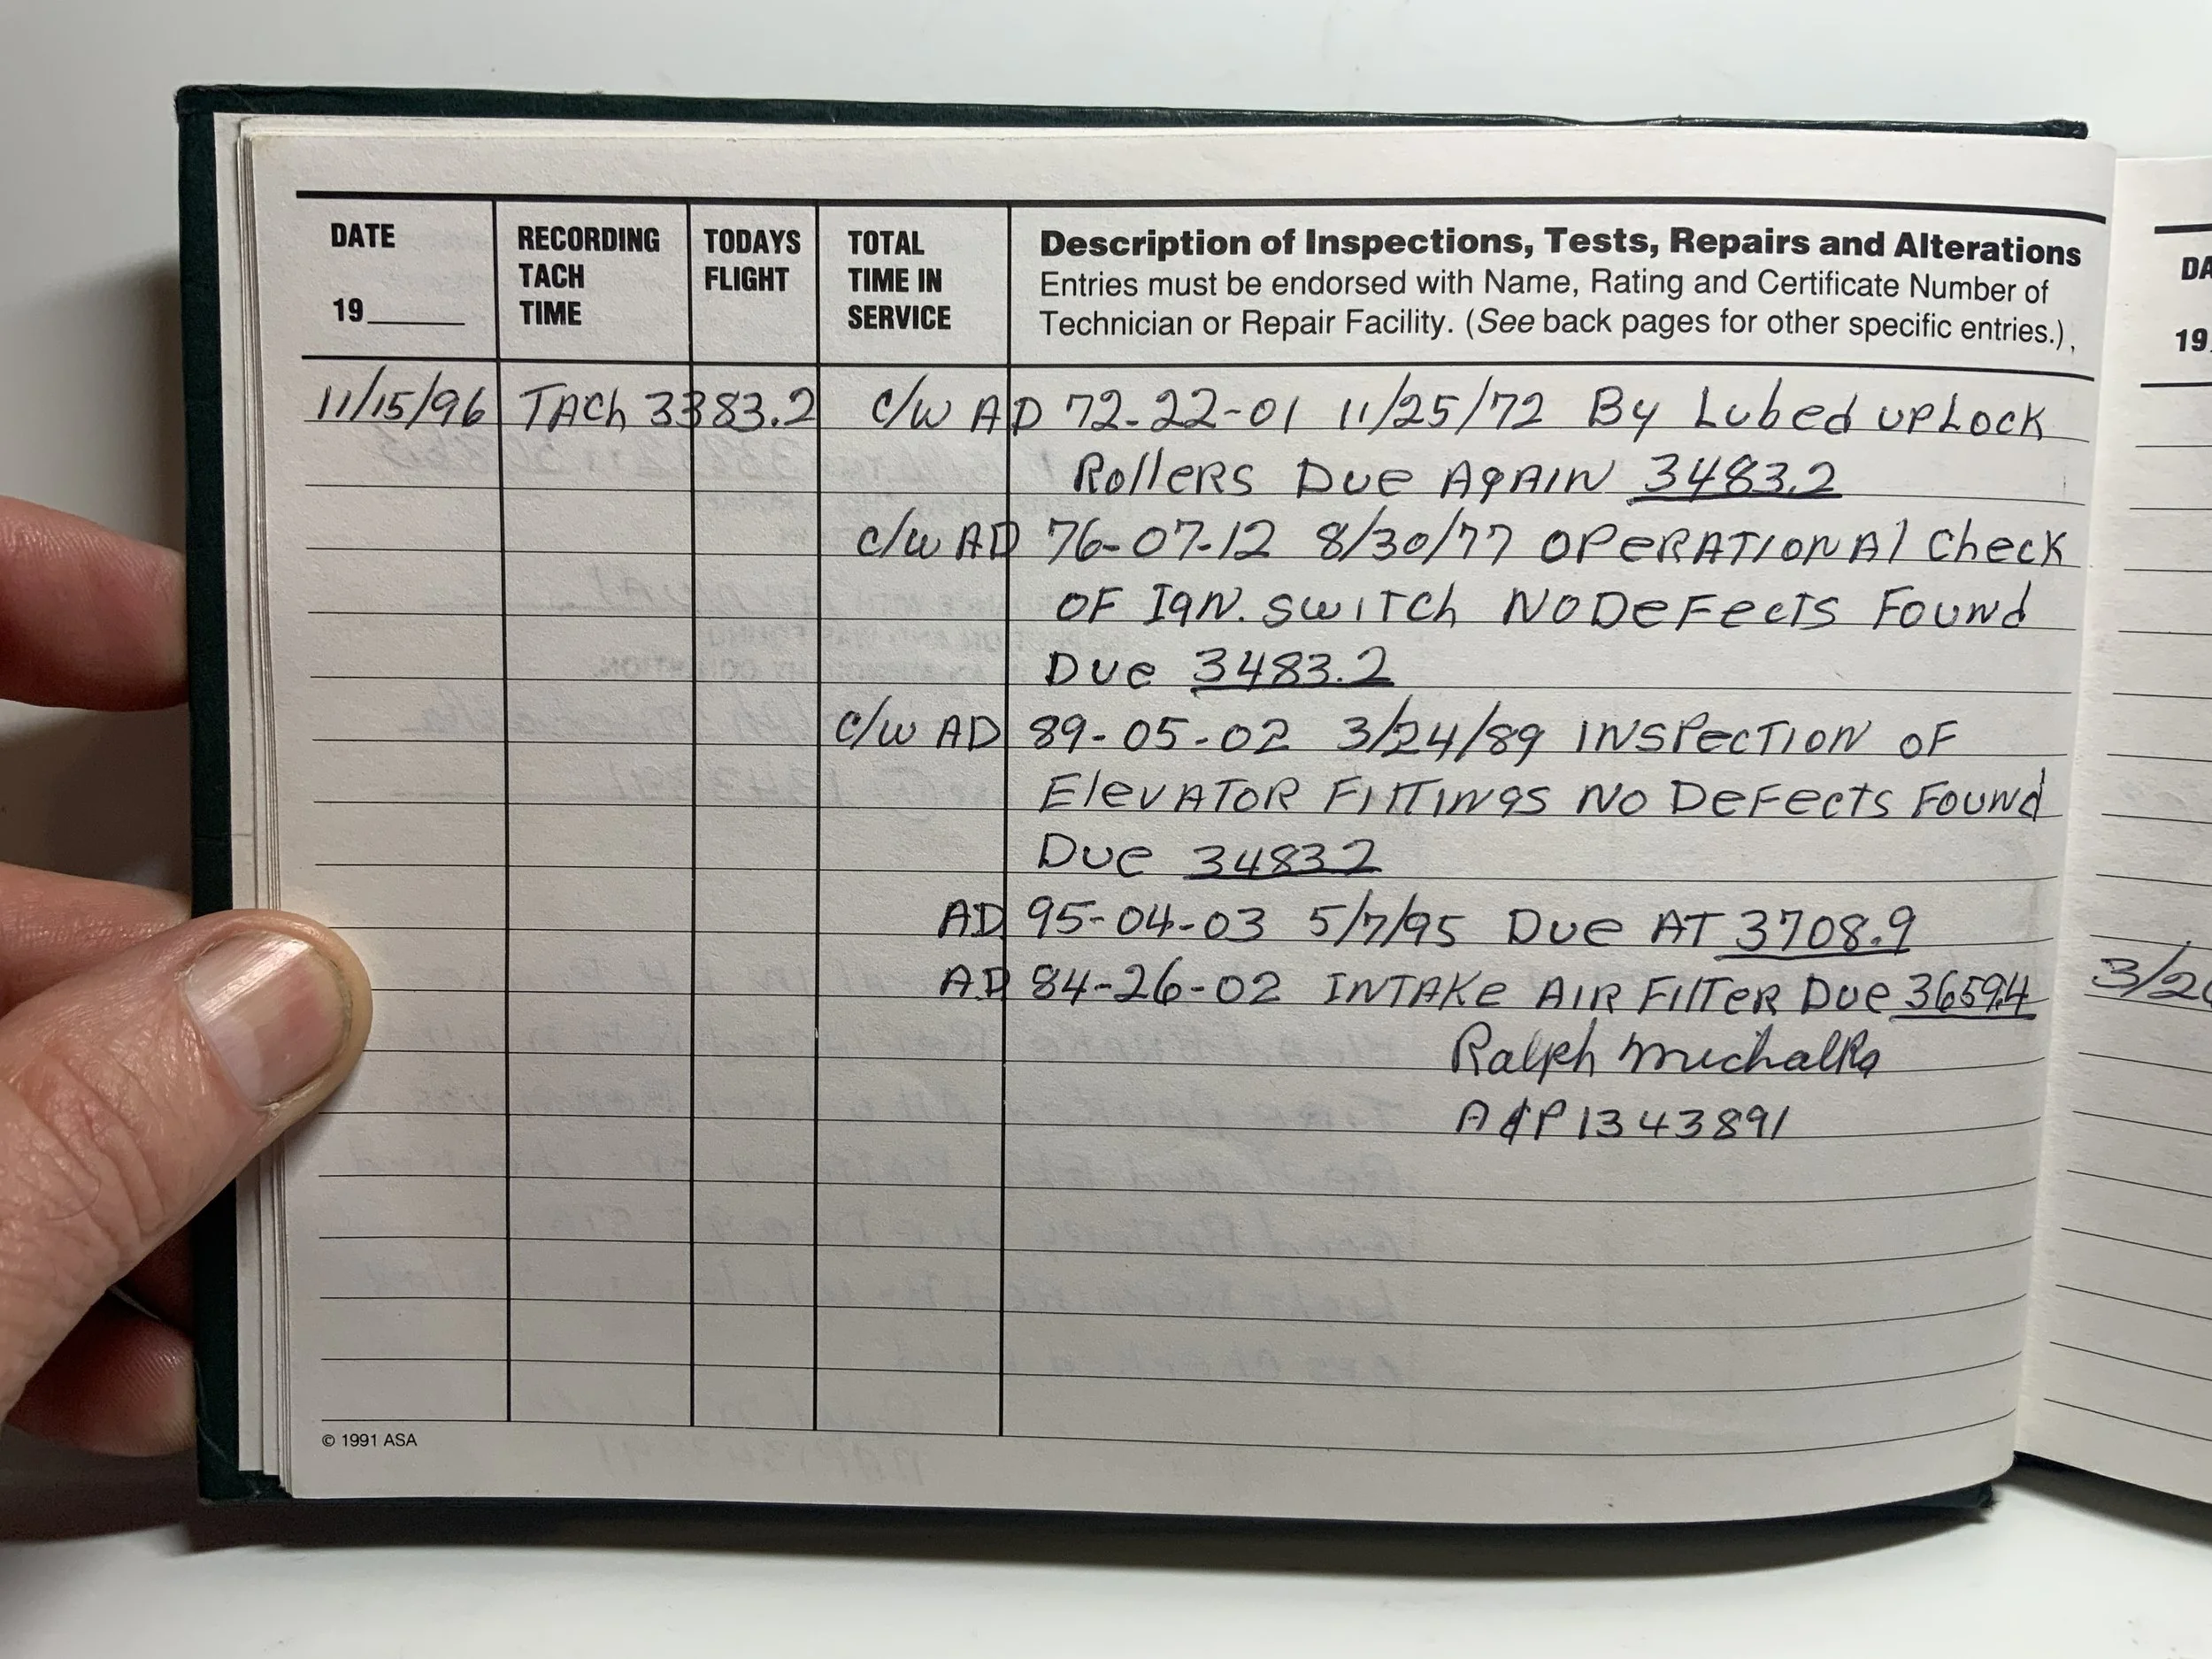 DATE RECORDING TODAYS TOTAL Description of Inspections, Tests, Repairs and Alterations
TACH FLIGHT TIME IN Entries must be endorsed with Name, Rating and Certificate Number of
19____ TIME SERVICE Technician or Repair Facility. (See back pages for other specific entries.)
11/15/96 TACh 3383.2 c/w AD 72-22-01 11/25/72 By Lubed upLock
RollERS Due AgAIN 3483.2
c/w AD 76-07-12 8/30/77 OPeRATIONAl Check
OF IgN. SWITCh NO DeFecTS Found
Due 3483.2
c/w AD 89-05-02 3/24/89 INSPecTION OF
ElevATOR FITTINgS NO DeFecTS Found
Due 34832
AD 95-04-03 5/7/95 Due AT 3708.9
AD 84-26-02 INTAKe AIR FIlTeR Due 3659.4
Ralph Michalka
A&P 1343891
© 1991 ASA
DA
19
3/2